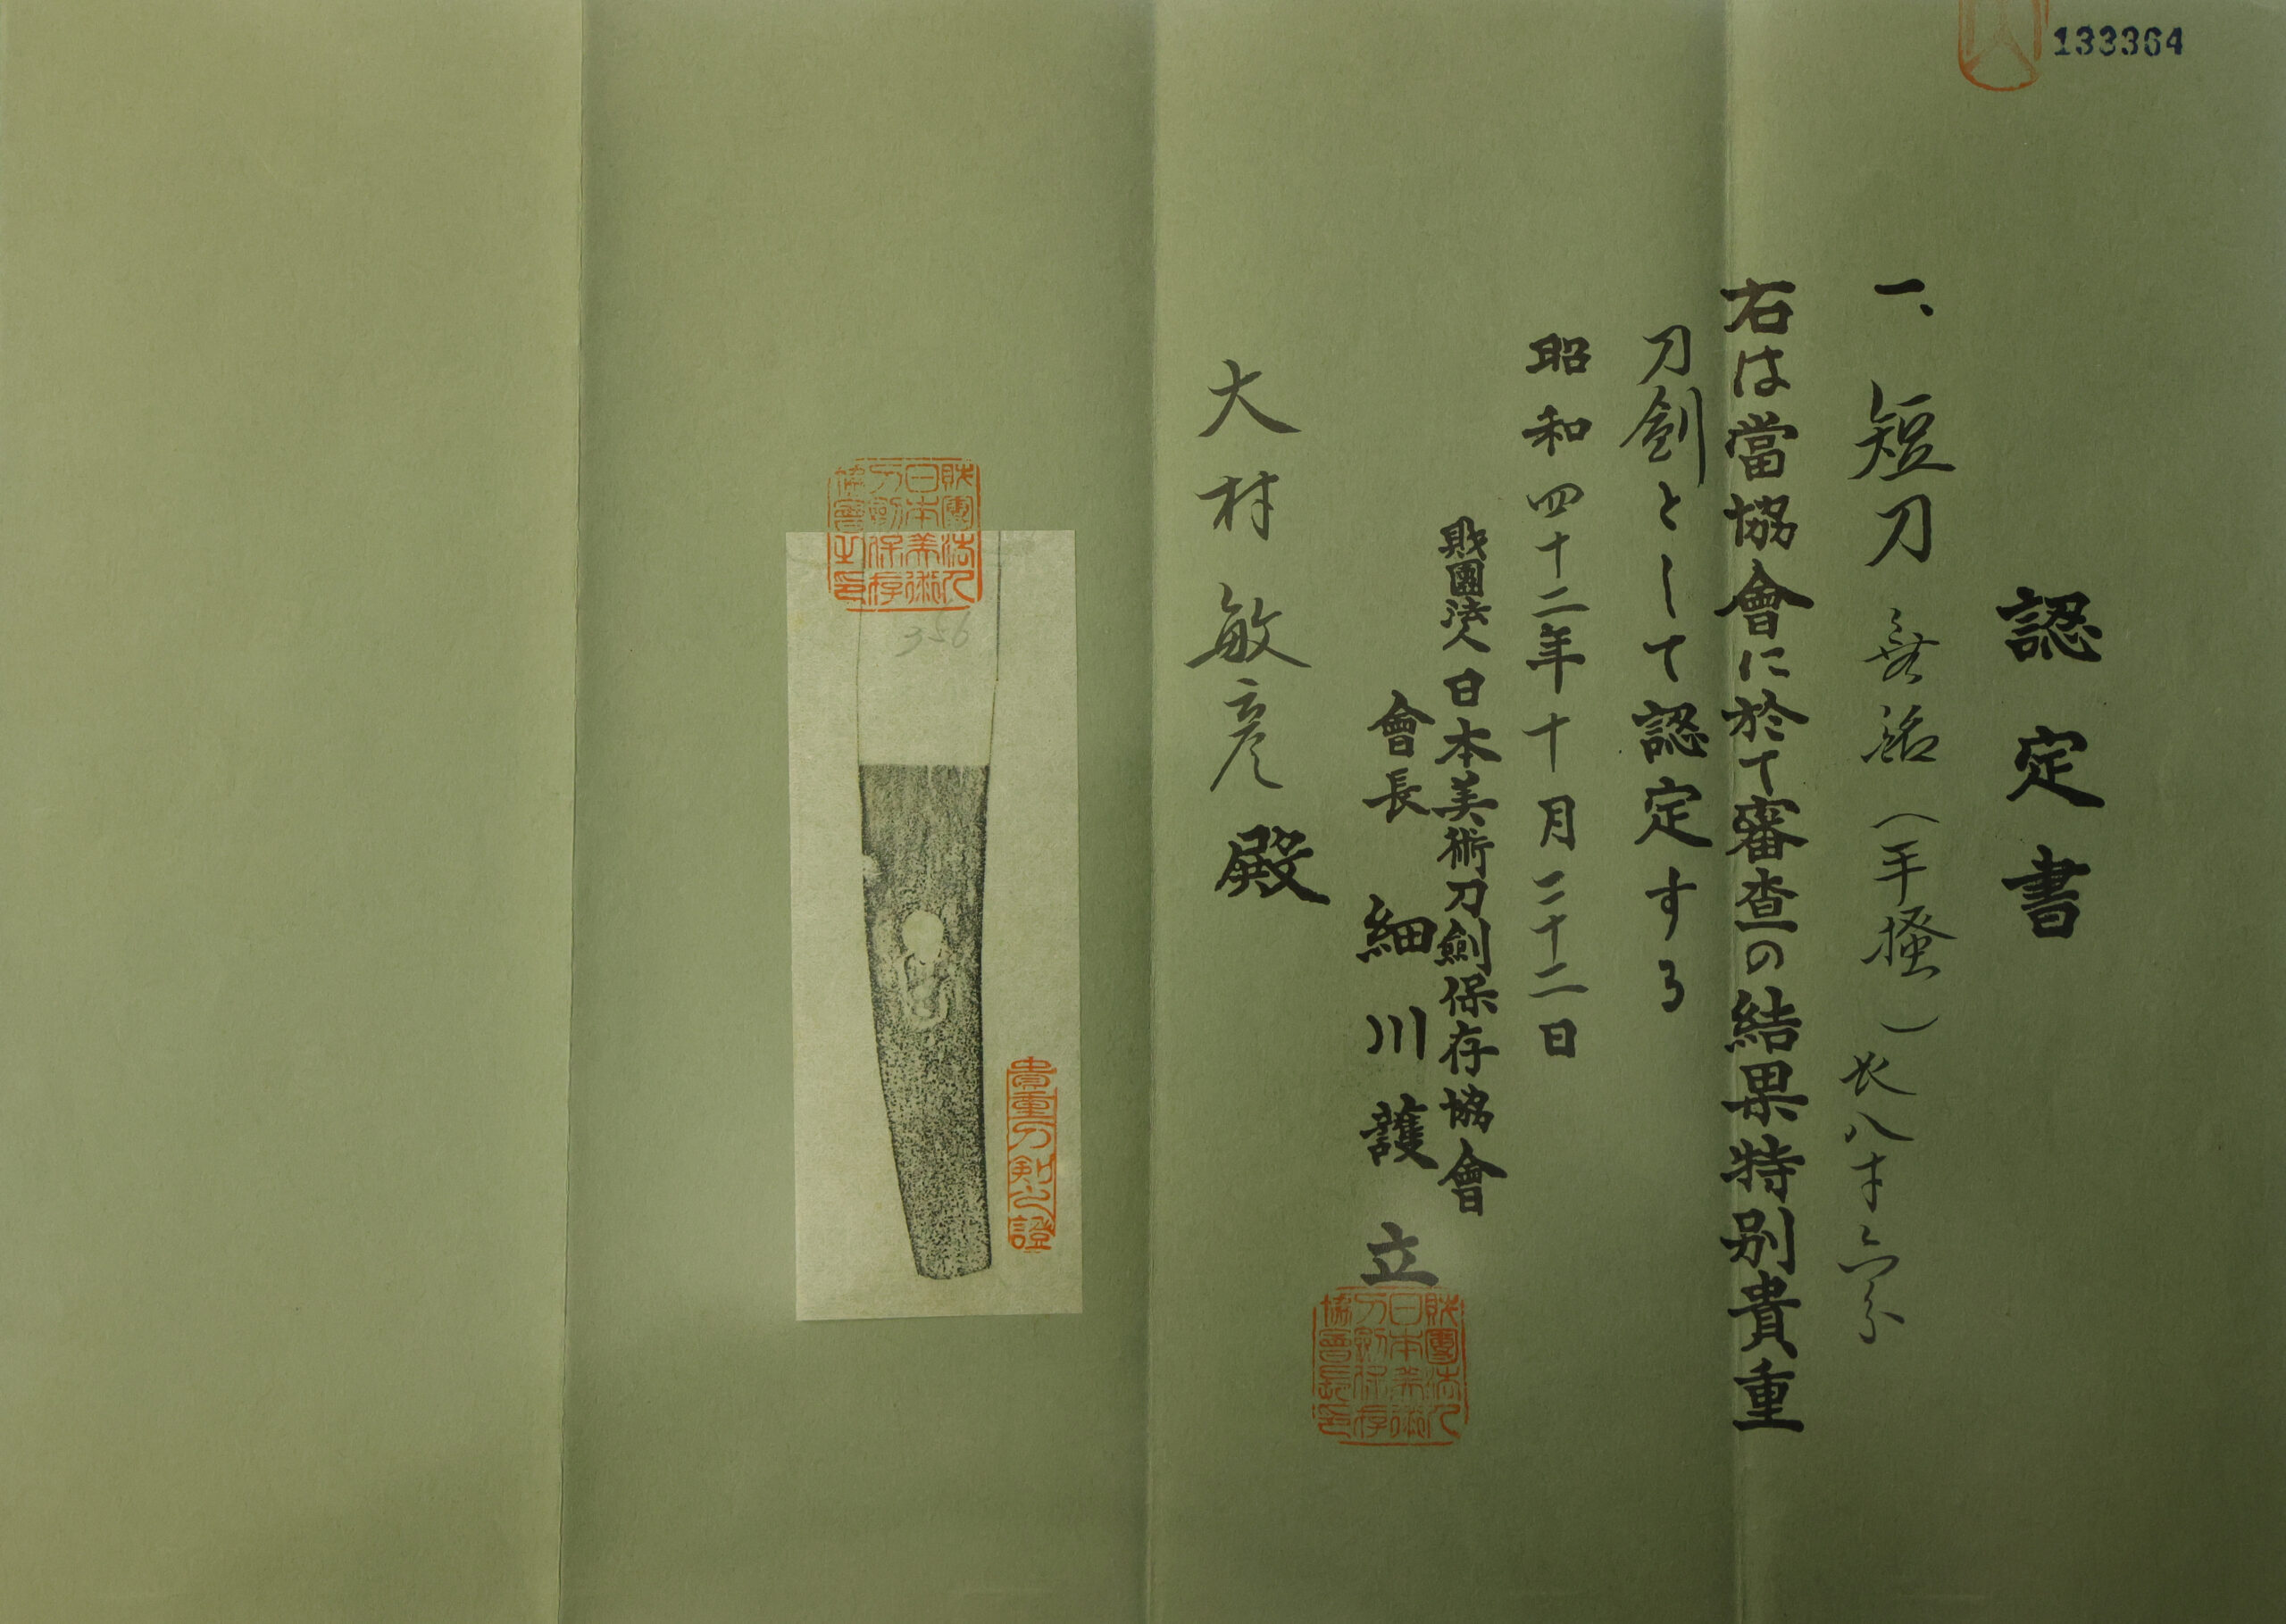 133364
認定書
一、短刀 無銘(手掻)长八寸六分
右は當協會に於て審査の結果特別貴重
刀劍として認定する
昭和四十二年十月二十二日
財團法人日本美術刀劍保存協會
會長 細川護立
財團法人日本美術刀劍保存協會長印
大村敏彦殿
財團法人日本美術刀劍保存協會之印
356
貴重刀剣之證